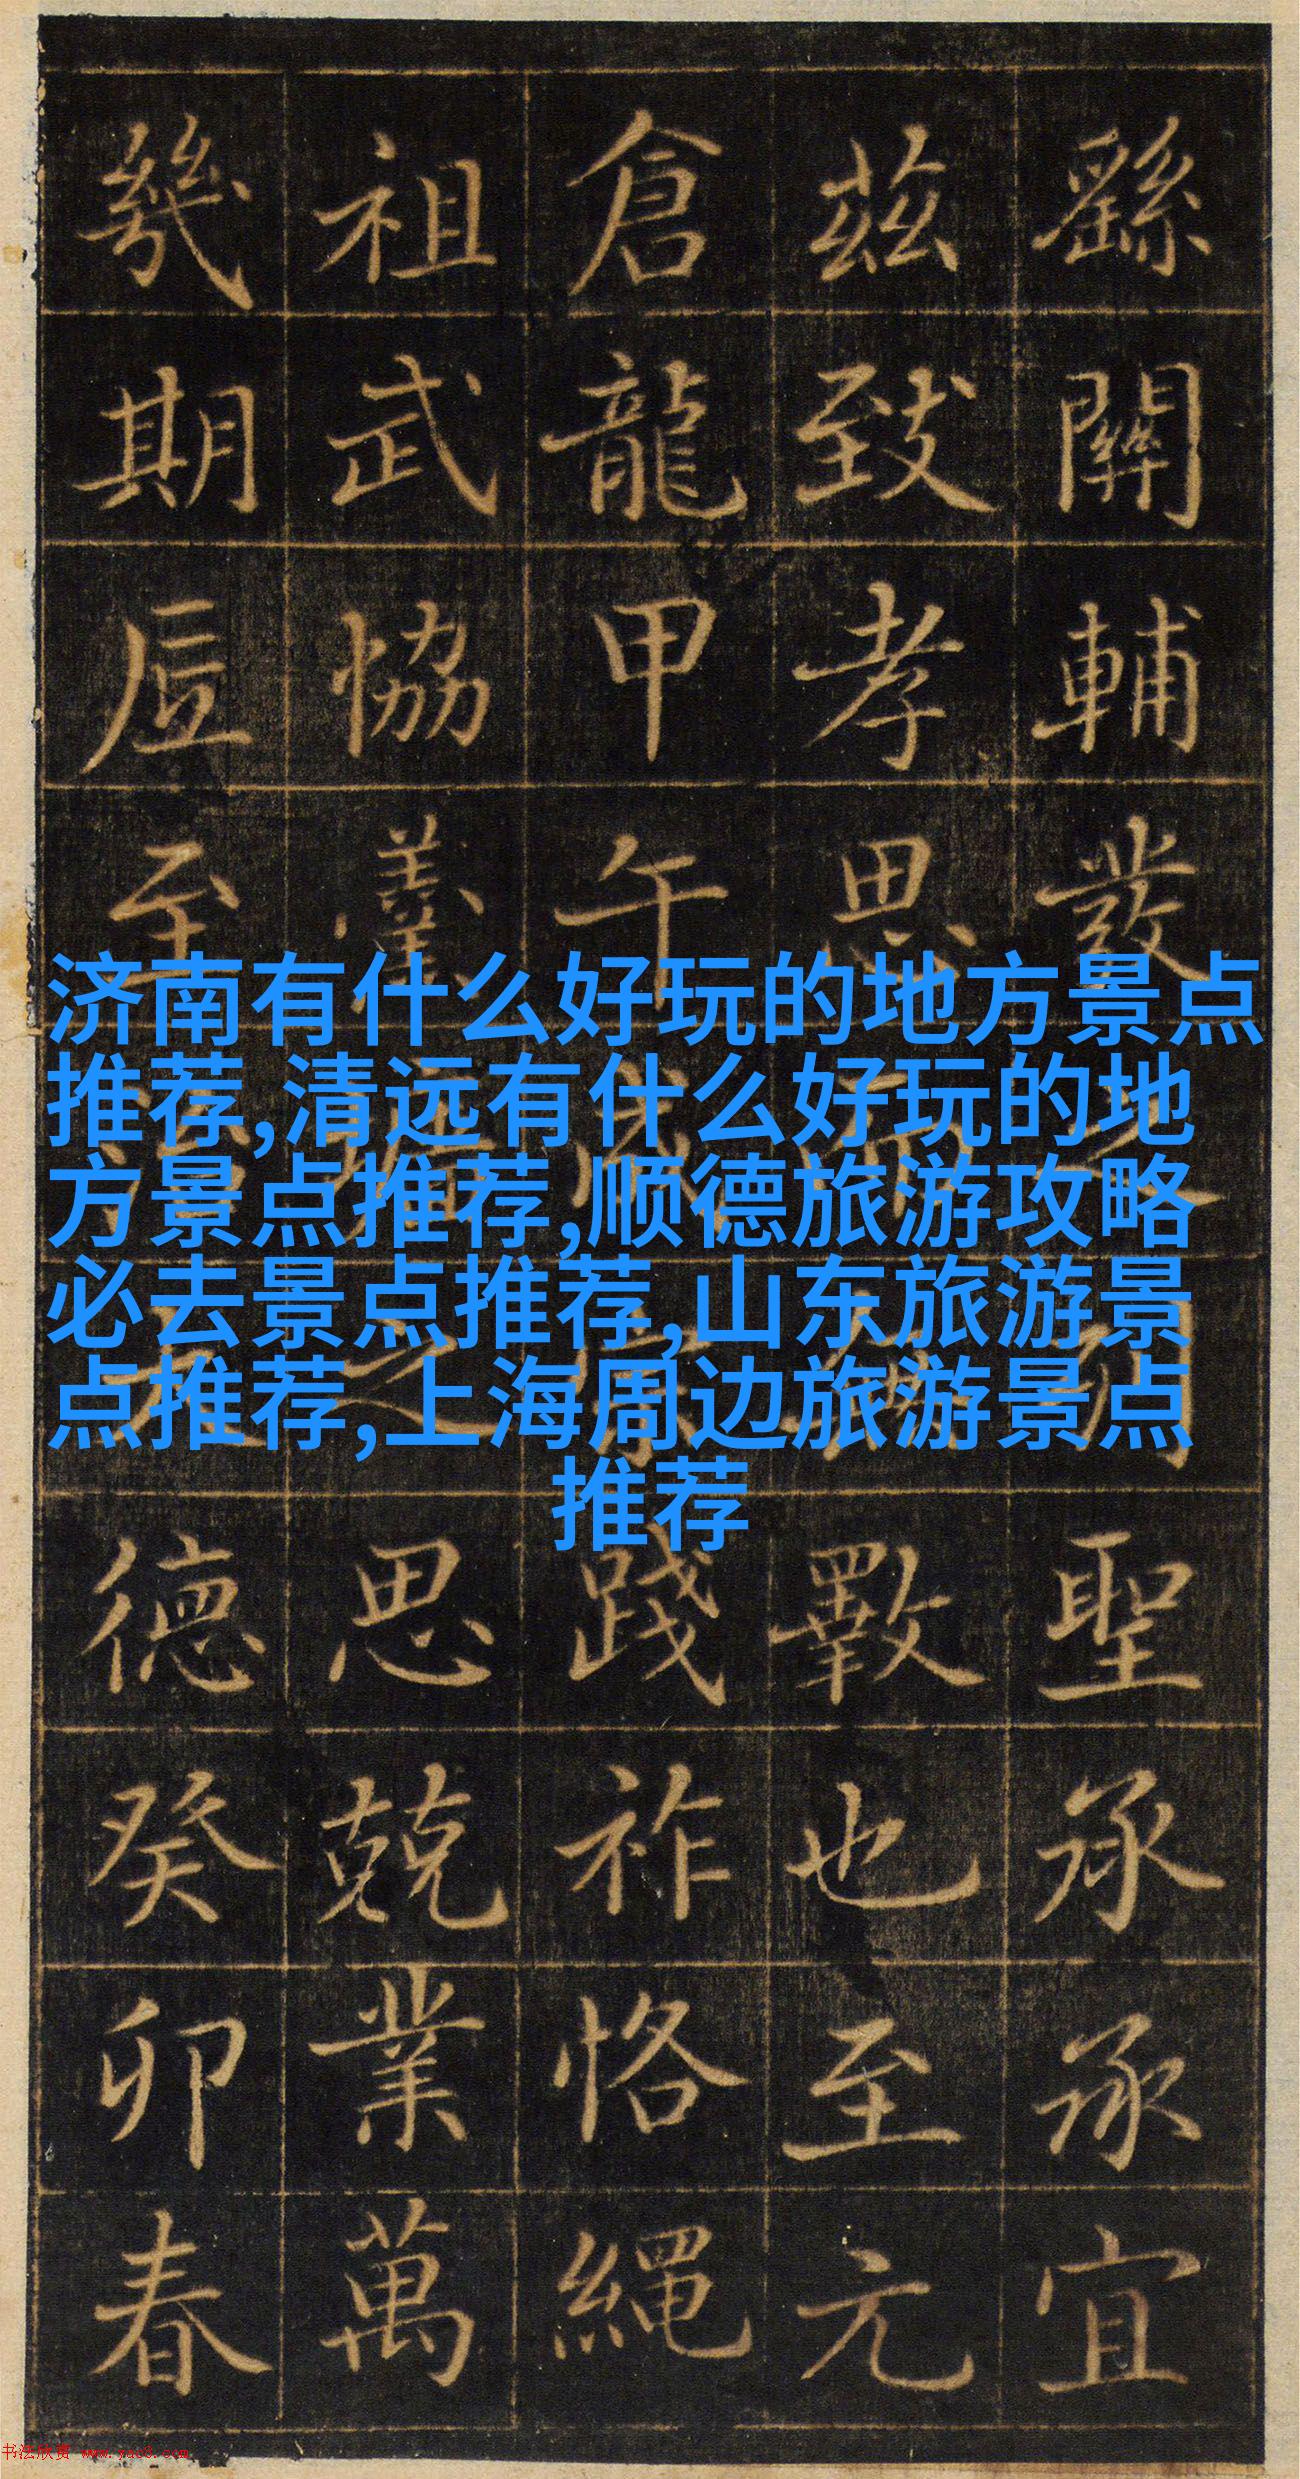 繇關輔發聖承承宜
茲致孝思斁也至元
倉龍甲午成宗踐祚恪繩
祖武協羹之思兢業萬
幾期至德癸卯春
济南有什么好玩的地方景点
推荐,清远有什么好玩的地
方景点推荐,顺德旅游攻略
必去景点推荐,山东旅游景
点推荐,上海周边旅游景点
推荐
书法欣赏 www.yac8.com